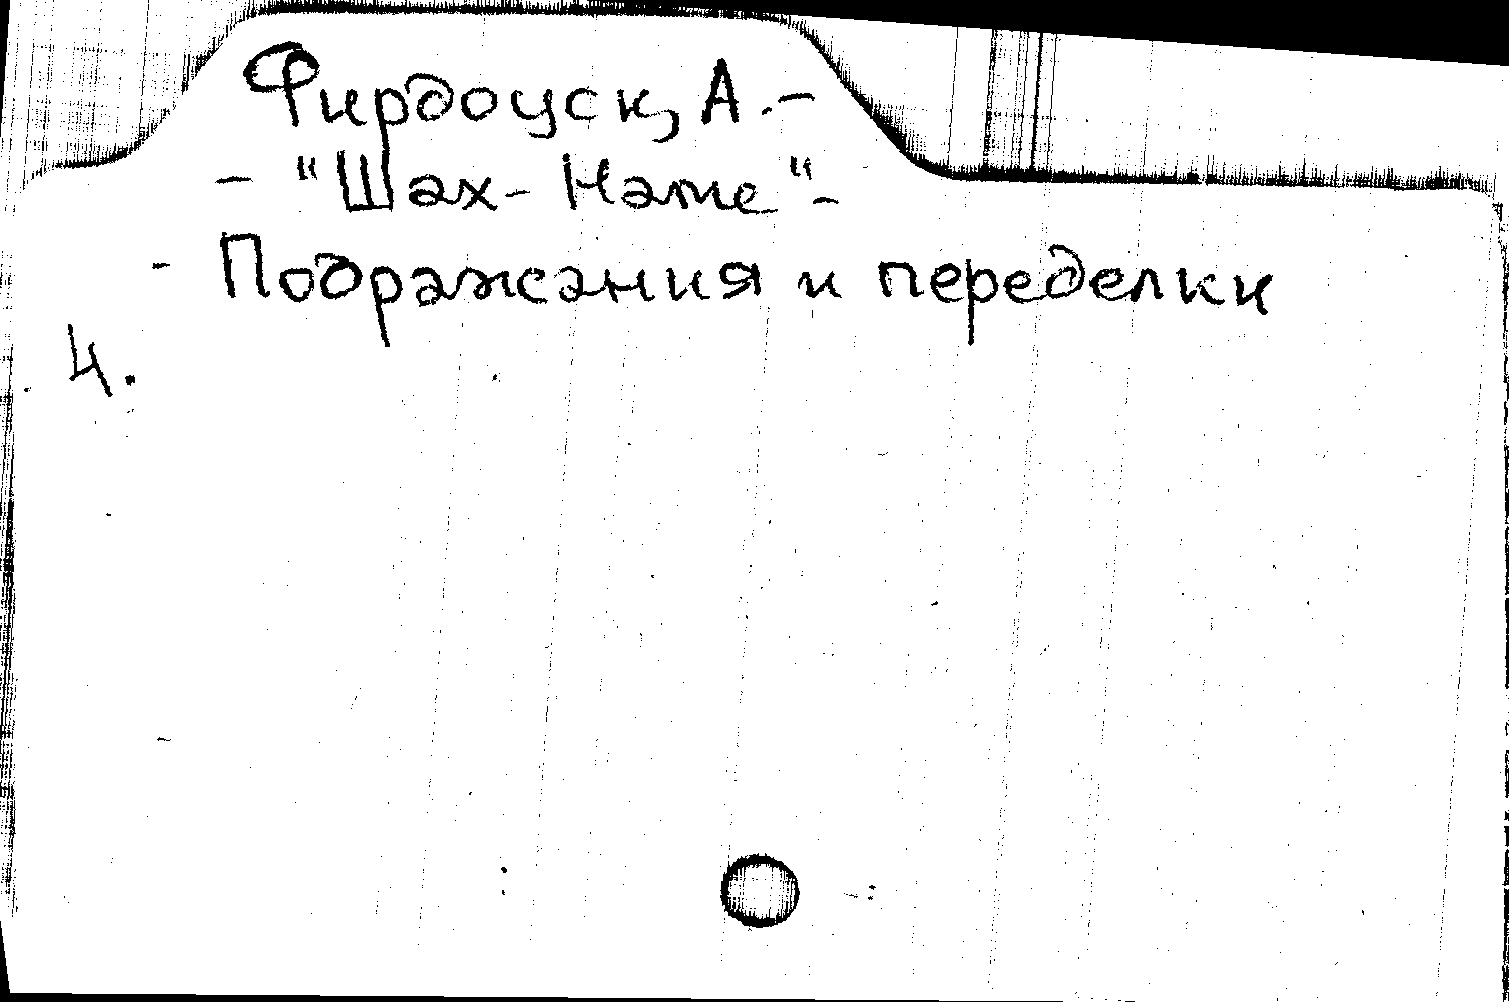 Фирдоуси, А. –
– "Шах-Наме" –
– Подражания и переделки
4.